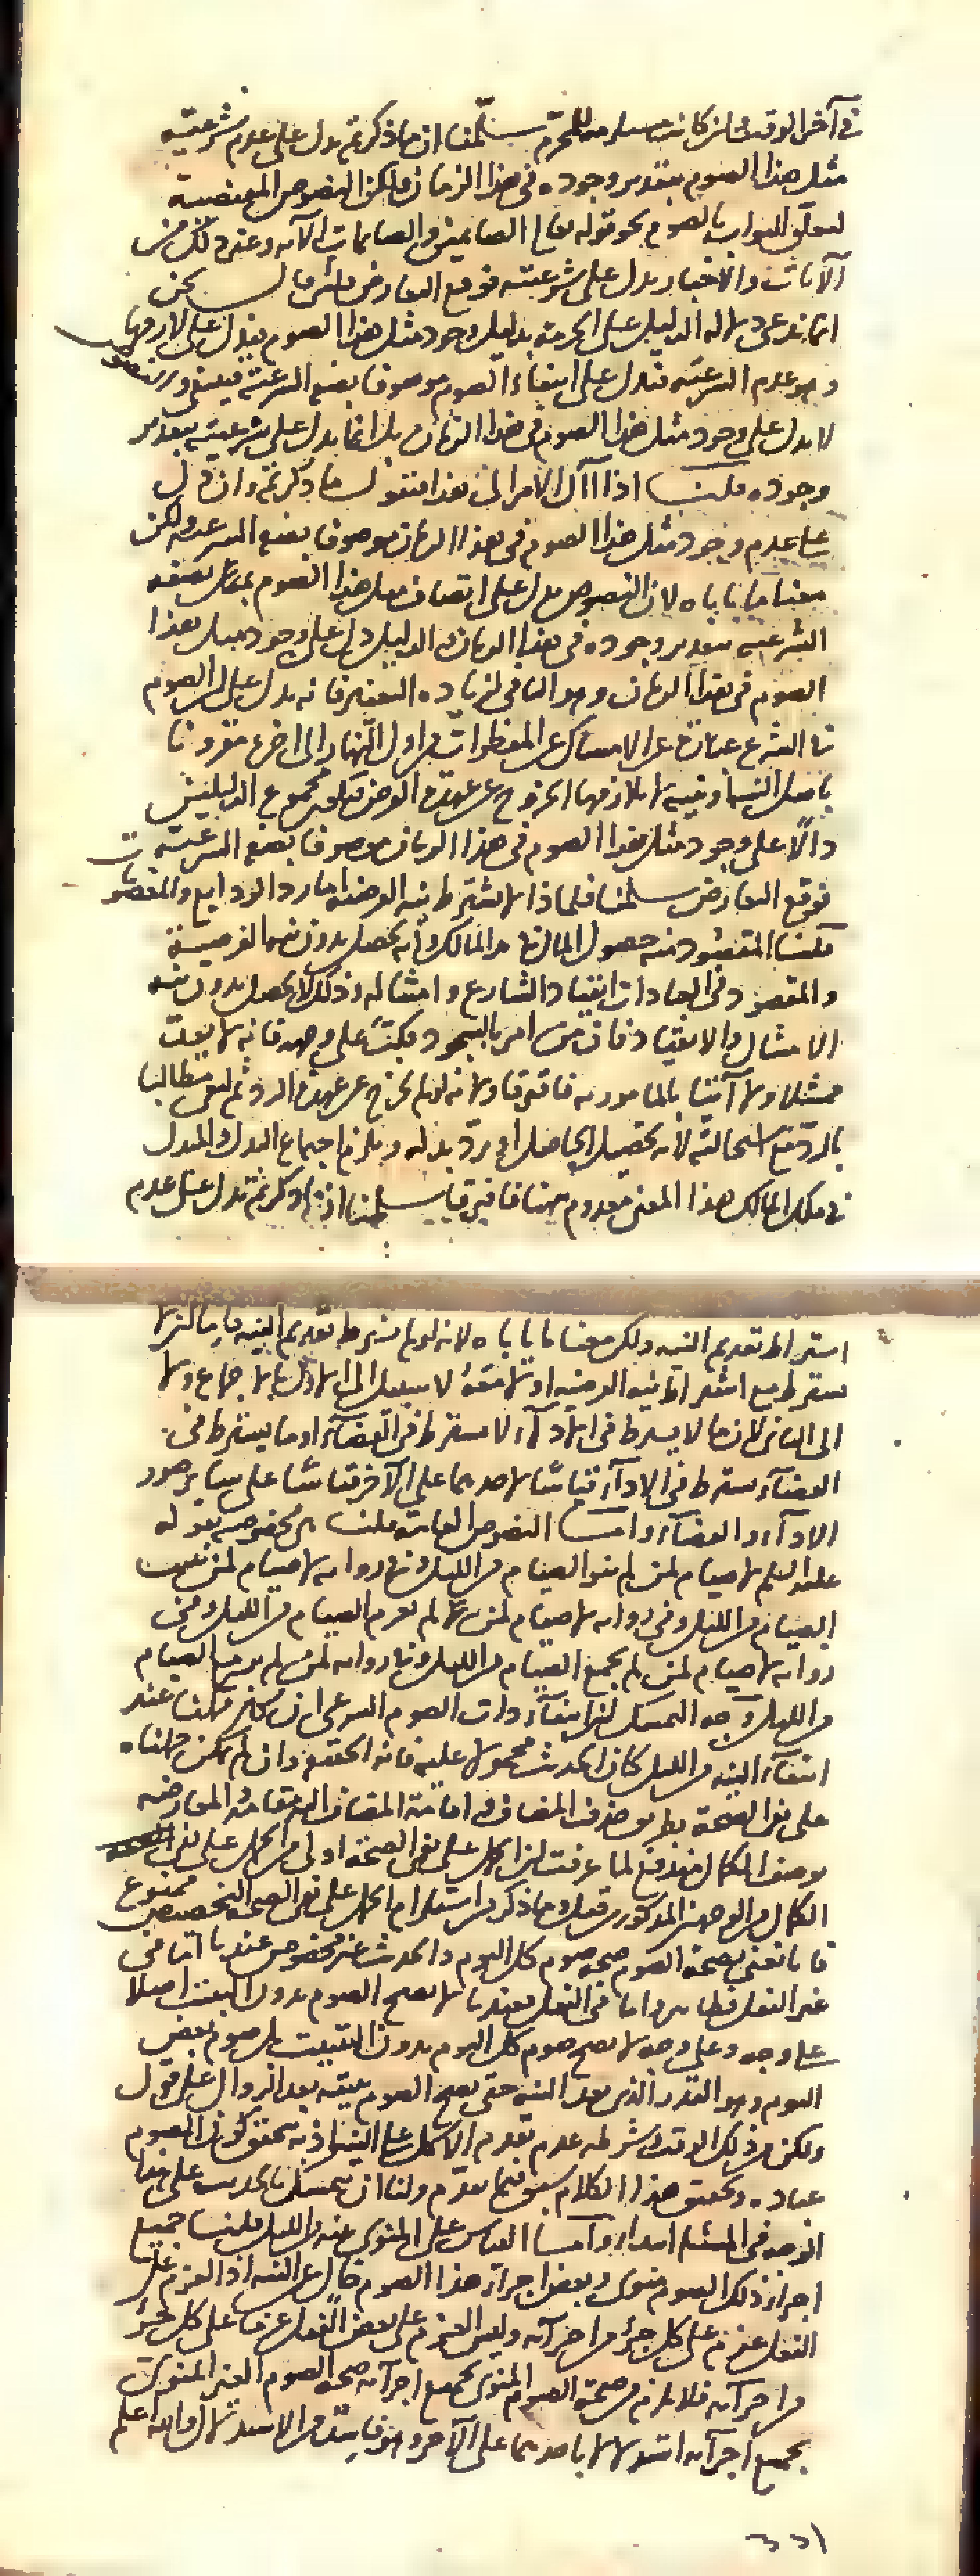 في آخر الوقت وان كانت مسلمة للتحريم سلمنا ان ما ذكرتم يدل على عدم شرعيته
مثل هذا الصوم بتقدير وجوده في هذا الزمان ولكن النصوص المقتضية
لتعلق الثواب بالصوم نحو قوله تعالى الصائمين والصائمات الآية وغير ذلك من
الآيات والاخبار يدل على شرعيته فوقع التعارض فلئن قال نحن
انما ندعي دلالة الدليل على الحرمة بدليل وجود مثل هذا الصوم فيدل على لازمها
وهو عدم الشرعية فتدل على انتفاء الصوم موصوفا بصفة الشرعية
لا يدل على وجود مثل هذا الصوم في هذا الزمان بل انما يدل على شرعيته بتقدير
وجوده قلنا اذا آل الامر الى هذا فنقول ما ذكرتم وان دل
على عدم وجود مثل هذا الصوم في هذا الزمان موصوفا بصفة الشرعية ولكن
معنا ما يأباه لان النصوص تدل على اتصاف مثل هذا الصوم بصفة
الشرعية بتقدير وجوده في هذا الزمان والدليل دل على وجود مثل هذا
الصوم في هذا الزمان وهو النافي لزيادة التغير فانه يدل على ان الصوم
في الشرع عبارة عن الامساك عن المفطرات من اول النهار الى آخره مقرونا
باصل النية ملازمها الخروج عن عهدة الفرض فكان مجموع الدليلين
دالا على وجود مثل هذا الصوم في هذا الزمان موصوفا بصفة الشرعية
فوقع التعارض سلمنا فلماذا لا تشترط نية الفرضية اما رد الودايع والمغصوبات
قلنا المقصود منه حصول المال في يد المالك وانه يحصل بدون نية الفرضية
والمقصود في العبادات انقياد الشارع وامتثاله وذلك لا يحصل بدون نية
الامتثال والانقياد فان من امر بالسجود فكبت على وجهه فانه لا يعد
ممتثلا ولا آتيا بالمأمور به فافترقا ولانه لو لم يخرج عن عهدة الرد ثم يبقى مطالبا
بالرد مع استحالته لانه تحصيل الحاصل او برد بدله ويلزم اجتماع البدل والمبدل
في ملك المالك هذا المعنى معدوم هنا فافترقا سلمنا ان ما ذكرتم يدل على عدم
اشتراط تقديم النية ولكن معنا ما يأباه لانه لو لم يشترط تقديم النية فاما ان لا
يشترط مع اشتراط نية الفرضية او لا معه لا سبيل الى الاول بالاجماع ولا
الى الثاني لان ما لا يشترط في الاداء لا يشترط في القضاء او ما يشترط في
القضاء يشترط في الاداء قياسا لاحدهما على الآخر قياسا على سائر صور
الاداء والقضاء واما النصوص العامة قلنا هي مخصوصة بقوله
عليه السلام لا صيام لمن لم ينو الصيام من الليل وفي رواية لا صيام لمن لم يبيت
الصيام من الليل وفي رواية لا صيام لمن لم يعزم الصيام من الليل وفي
رواية لا صيام لمن لم يجمع الصيام من الليل وفي رواية لمن لم يورض الصيام
من الليل وجه التمسك ان انتفاء ذات الصوم الشرعي ان كان ممكنا عند
انتفاء النية من الليل كان الحديث محمولا عليه فانه الحقيقة وان لم يكن حملناه
على نفي الصحة بطريق حذف المضاف واقامة المضاف اليه مقامه والمعارضة
بوصف الكمال مندفع لما عرفت ان الحمل على نفي الصحة اولى من الحمل على نفي
الكمال من الوجهين المذكورين قبل وما ذكر من استلزام الحمل على نفي الصحة التخصيص ممنوع
فانا نعني بصحة الصوم صحة صوم كل اليوم والحديث غير مخصوص عندنا اما في
غير النفل فظاهر واما في النفل فعندنا لا يصح الصوم بدون التبييت اصلا
على وجه وعلى وجه لا يصح صوم كل اليوم بدون التبييت بل صوم بعض
اليوم وهو القدر الذي بعد النية حتى يصح الصوم بنيته بعد الزوال على قول
ولكن من ذلك الوقت وشرطه عدم تقدم الاكل على النية اذ به يتحقق كون الصوم
عبادة وتحقيق هذا الكلام سبق فيما تقدم ولنا ان نتمسك بالحديث على هذا
الوجه في المسئلة ابتداء واما القياس على المنوي عنه من الليل قلنا جميع
اجزاء ذلك الصوم منوي وبعض اجزاء هذا الصوم خال عن النية اذ العزم على
الفعل عزم على كل جزء من اجزائه وليس العزم على بعض الفعل عزما على كل جزء
من اجزائه فلا يلزم من صحة الصوم المنوي بجميع اجزائه صحة الصوم الغير المنوي
بجميع اجزائه استدلالا باحدهما على الآخر وهو فايدة من الاستدلال والله اعلم